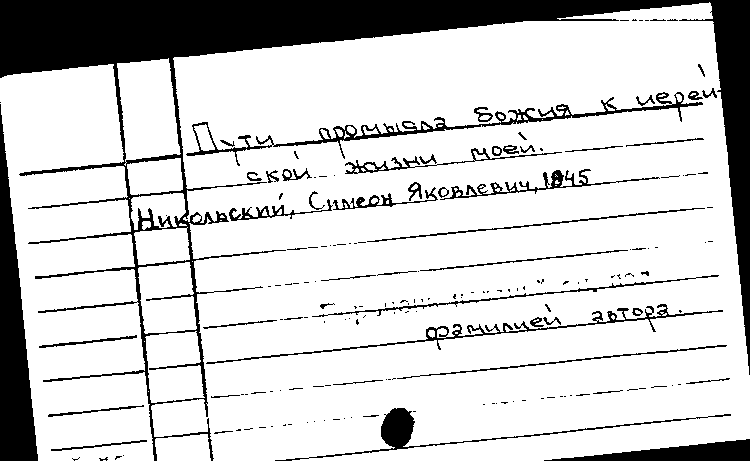 Пути промысла Божия к иерей-
ской жизни моей.
Никольский, Симеон Яковлевич, 1845
под
фамилией автора.